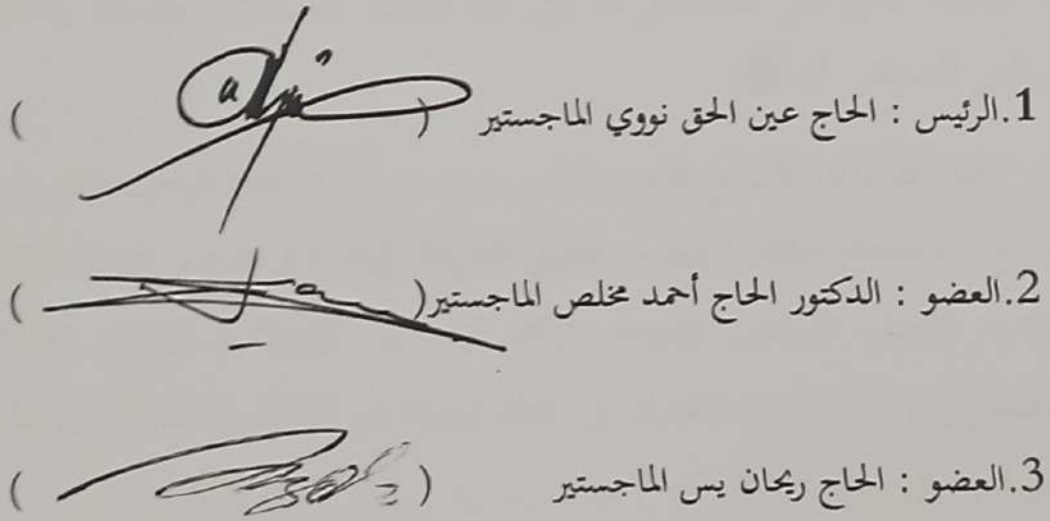 1.الرئيس : الحاج عين الحق نووي الماجستير ( )
2.العضو : الدكتور الحاج أحمد مخلص الماجستير( )
3.العضو : الحاج ريحان يس الماجستير ( )